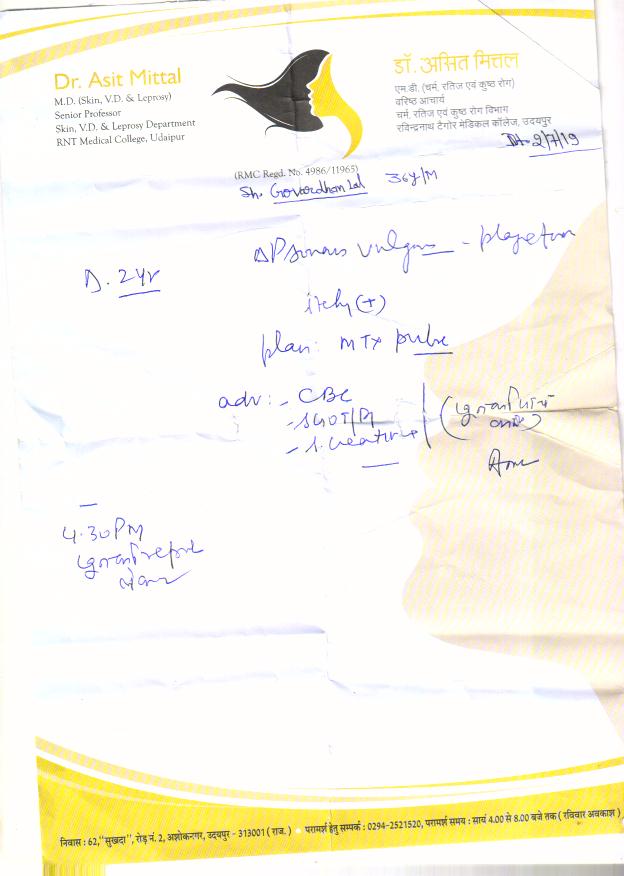 Dr. Asit Mittal
M.D. (Skin, V.D. & Leprosy)
Senior Professor
Skin, V.D. & Leprosy Department
RNT Medical College, Udaipur
डॉ. असित मित्तल
एम.डी. (चर्म, रतिज एवं कुष्ठ रोग)
वरिष्ठ आचार्य
चर्म, रतिज एवं कुष्ठ रोग विभाग
रविन्द्रनाथ टैगोर मेडिकल कॉलेज, उदयपुर
2/7/19
(RMC Regd. No. 4986/11965)
Sh. Govardhan Lal 36y/M
D. 2yr
Δ Psoriasis vulgaris -
itchy (+)
plan: MTx pulse
adv: - CBC
- SGOT/PT
- S. Creatinine
4.30PM
निवास : 62,"सुखदा", रोड़ नं. 2, अशोकनगर, उदयपुर - 313001 ( राज. ) • परामर्श हेतु सम्पर्क : 0294-2521520, परामर्श समय : सायं 4.00 से 8.00 बजे तक ( रविवार अवकाश )